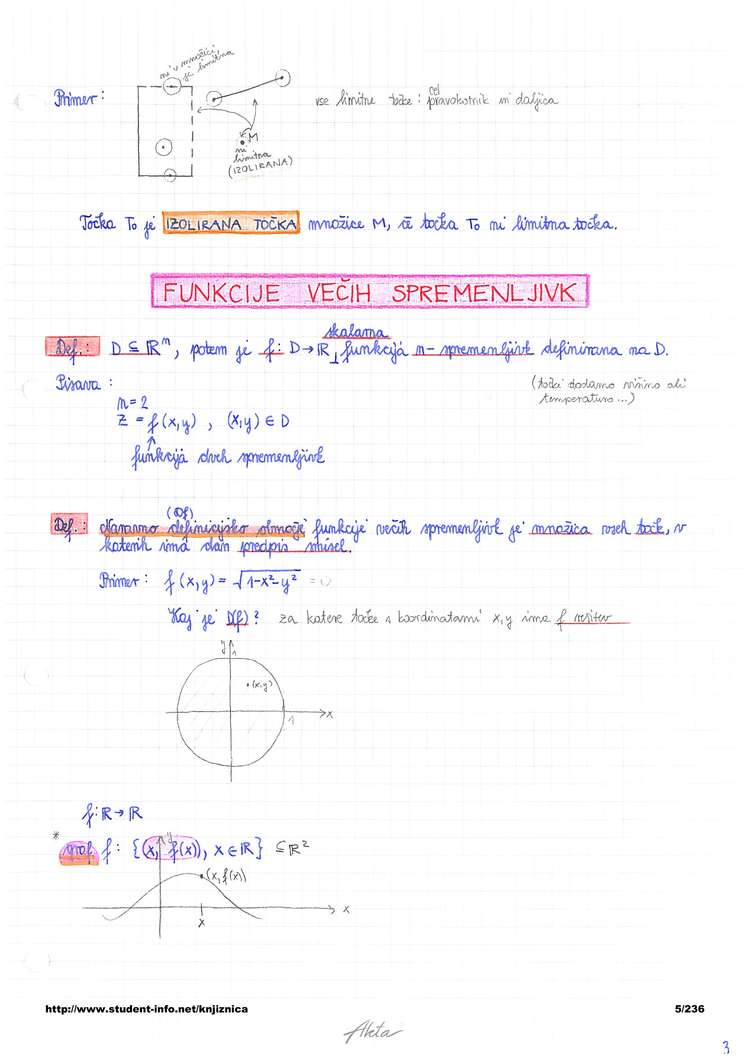 ni v množici,
je limitna
Primer:
vse limitne točke: cel pravokotnik in daljica
M
ni
limitna
(IZOLIRANA)
Točka T₀ je IZOLIRANA TOČKA množice M, če točka T₀ ni limitna točka.
FUNKCIJE VEČIH SPREMENLJIVK
skalarna
Def.: D ⊆ ℝⁿ, potem je f: D → ℝ funkcija n-spremenljivk definirana na D.
Pisava:
(točki dodamo višino ali
temperaturo...)
n=2
z = f(x,y) , (x,y) ∈ D
funkcija dveh spremenljivk
(Df)
Def.: Naravno definicijsko območje funkcije večih spremenljivk je množica vseh točk, v
katerih ima dan predpis smisel.
Primer: f(x,y) = √1-x²-y²
Kaj je D(f)? za katere točke s koordinatami x,y ima f rešitev
y
1
•(x,y)
1
x
f: ℝ → ℝ
* graf f: {(x, f(x)), x ∈ ℝ} ⊆ ℝ²
y
(x, f(x))
x
x
http://www.student-info.net/knjiznica
5/236
Akta
3